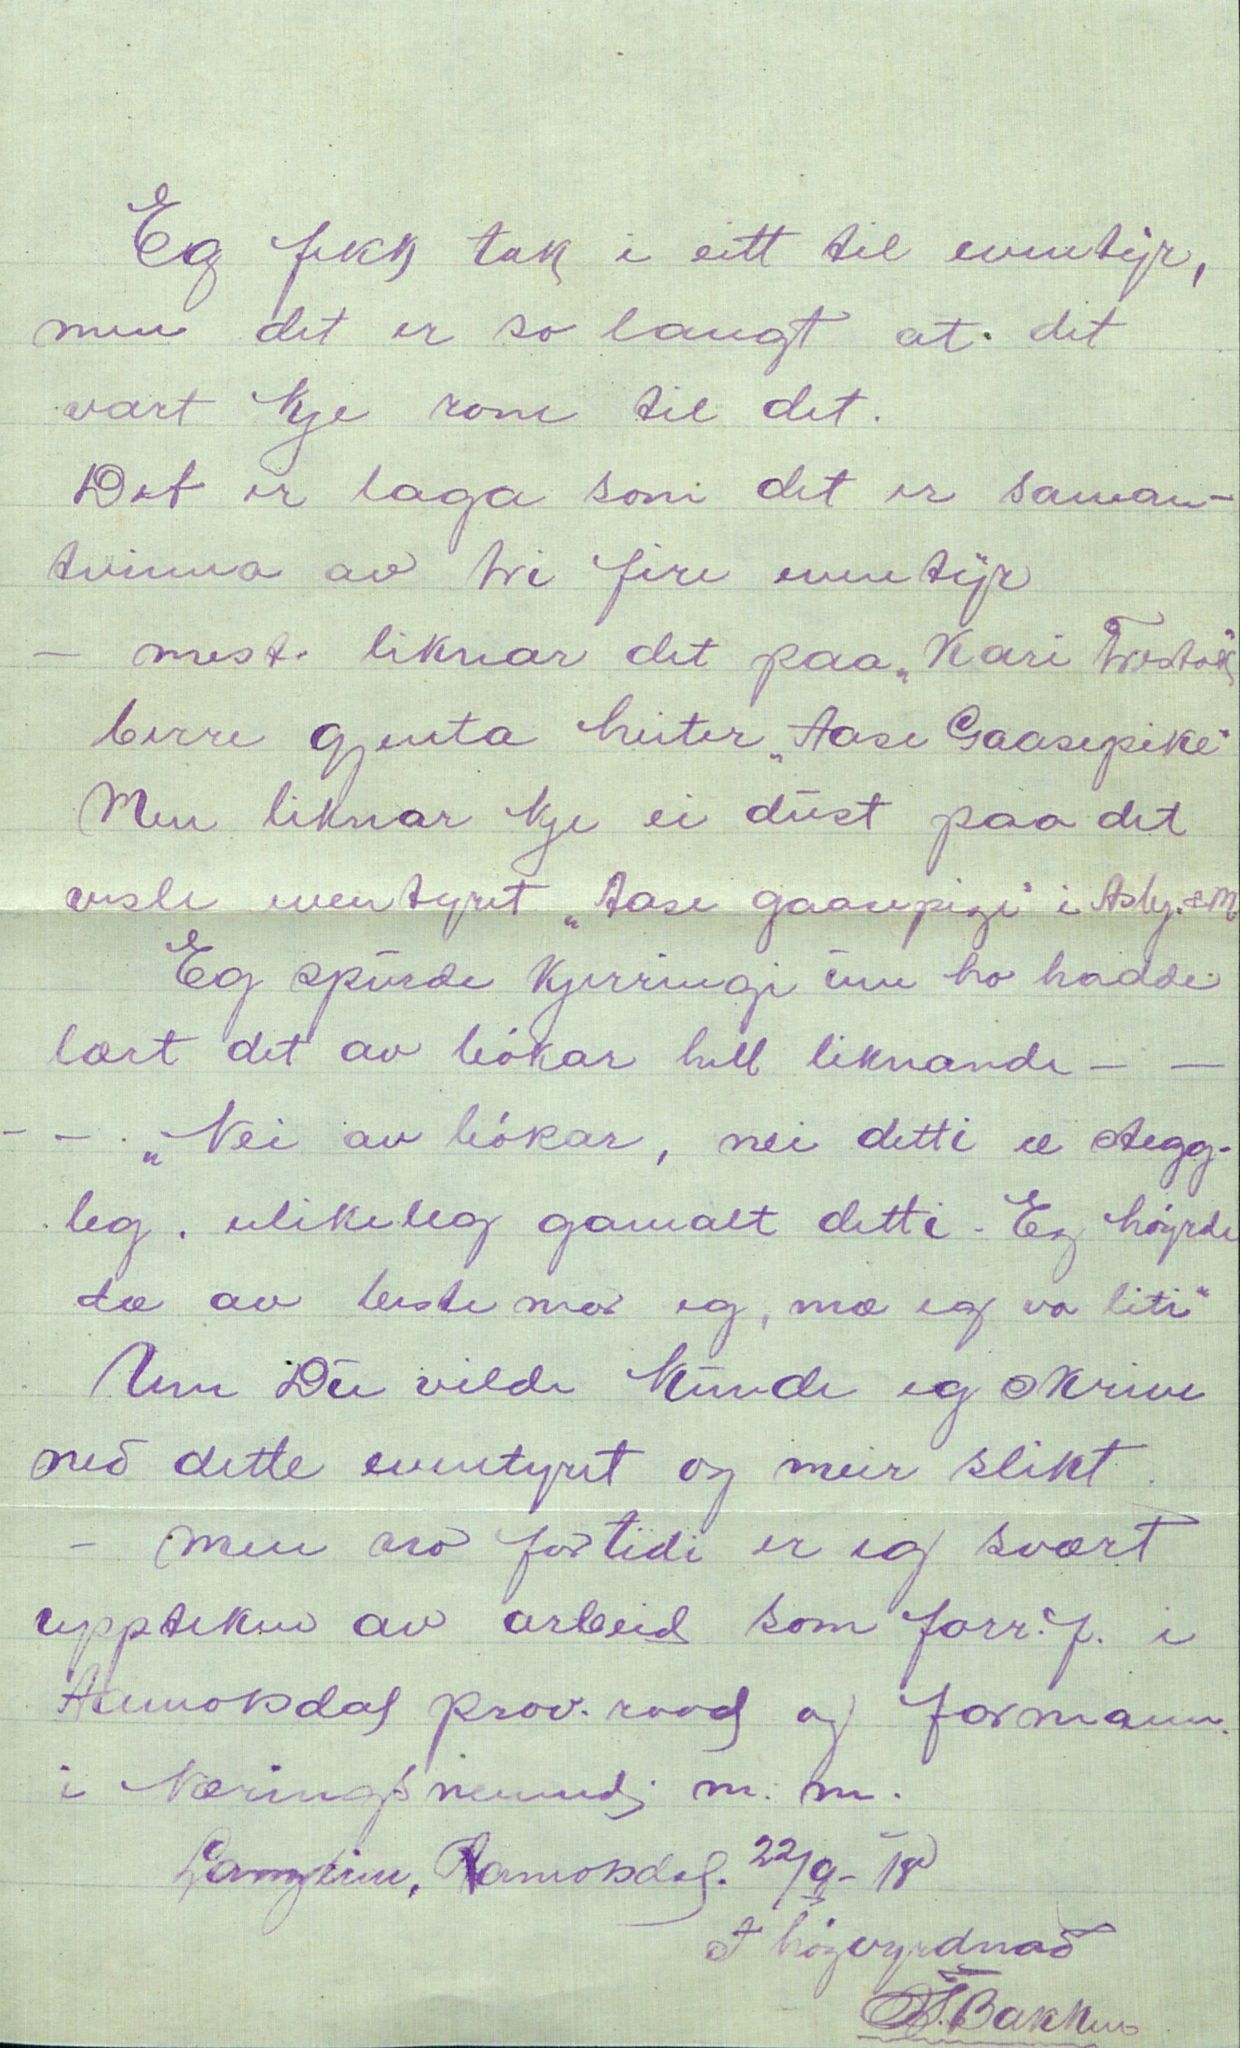 Eg fekk tak i eitt til eventyr,
men det er so langt at det
vart kje rom til det.
Det er laga som det er saman-
tvinna av tri fire eventyr
— mest liknar det paa „Kari Trestakk"
berre gjenta heiter „Aase Gaasepike"
Men liknar kje ei dust paa det
vesle eventyret „Aase gaasepige" i Asbj. & M.
Eg spurde kjerringi um ho hadde
lært det av bókar hell liknande — —
— — „Nei av bókar, nei detti æ stegg-
leg. ulikeleg gamalt detti - Eg høyrde
dæ av bestemor eg, mæ eg va liti"
Um Du vilde kunde eg skrive
ned dette eventyret og meir slikt.
— men no for tidi er eg svært
uppteken av arbeid som forr.f. i
Aamotsdal prov. raad og formann
i Næringsnemnd m. m.
Aamotsdal. 22/9 - 18
I høgvyrdnad
Bakken